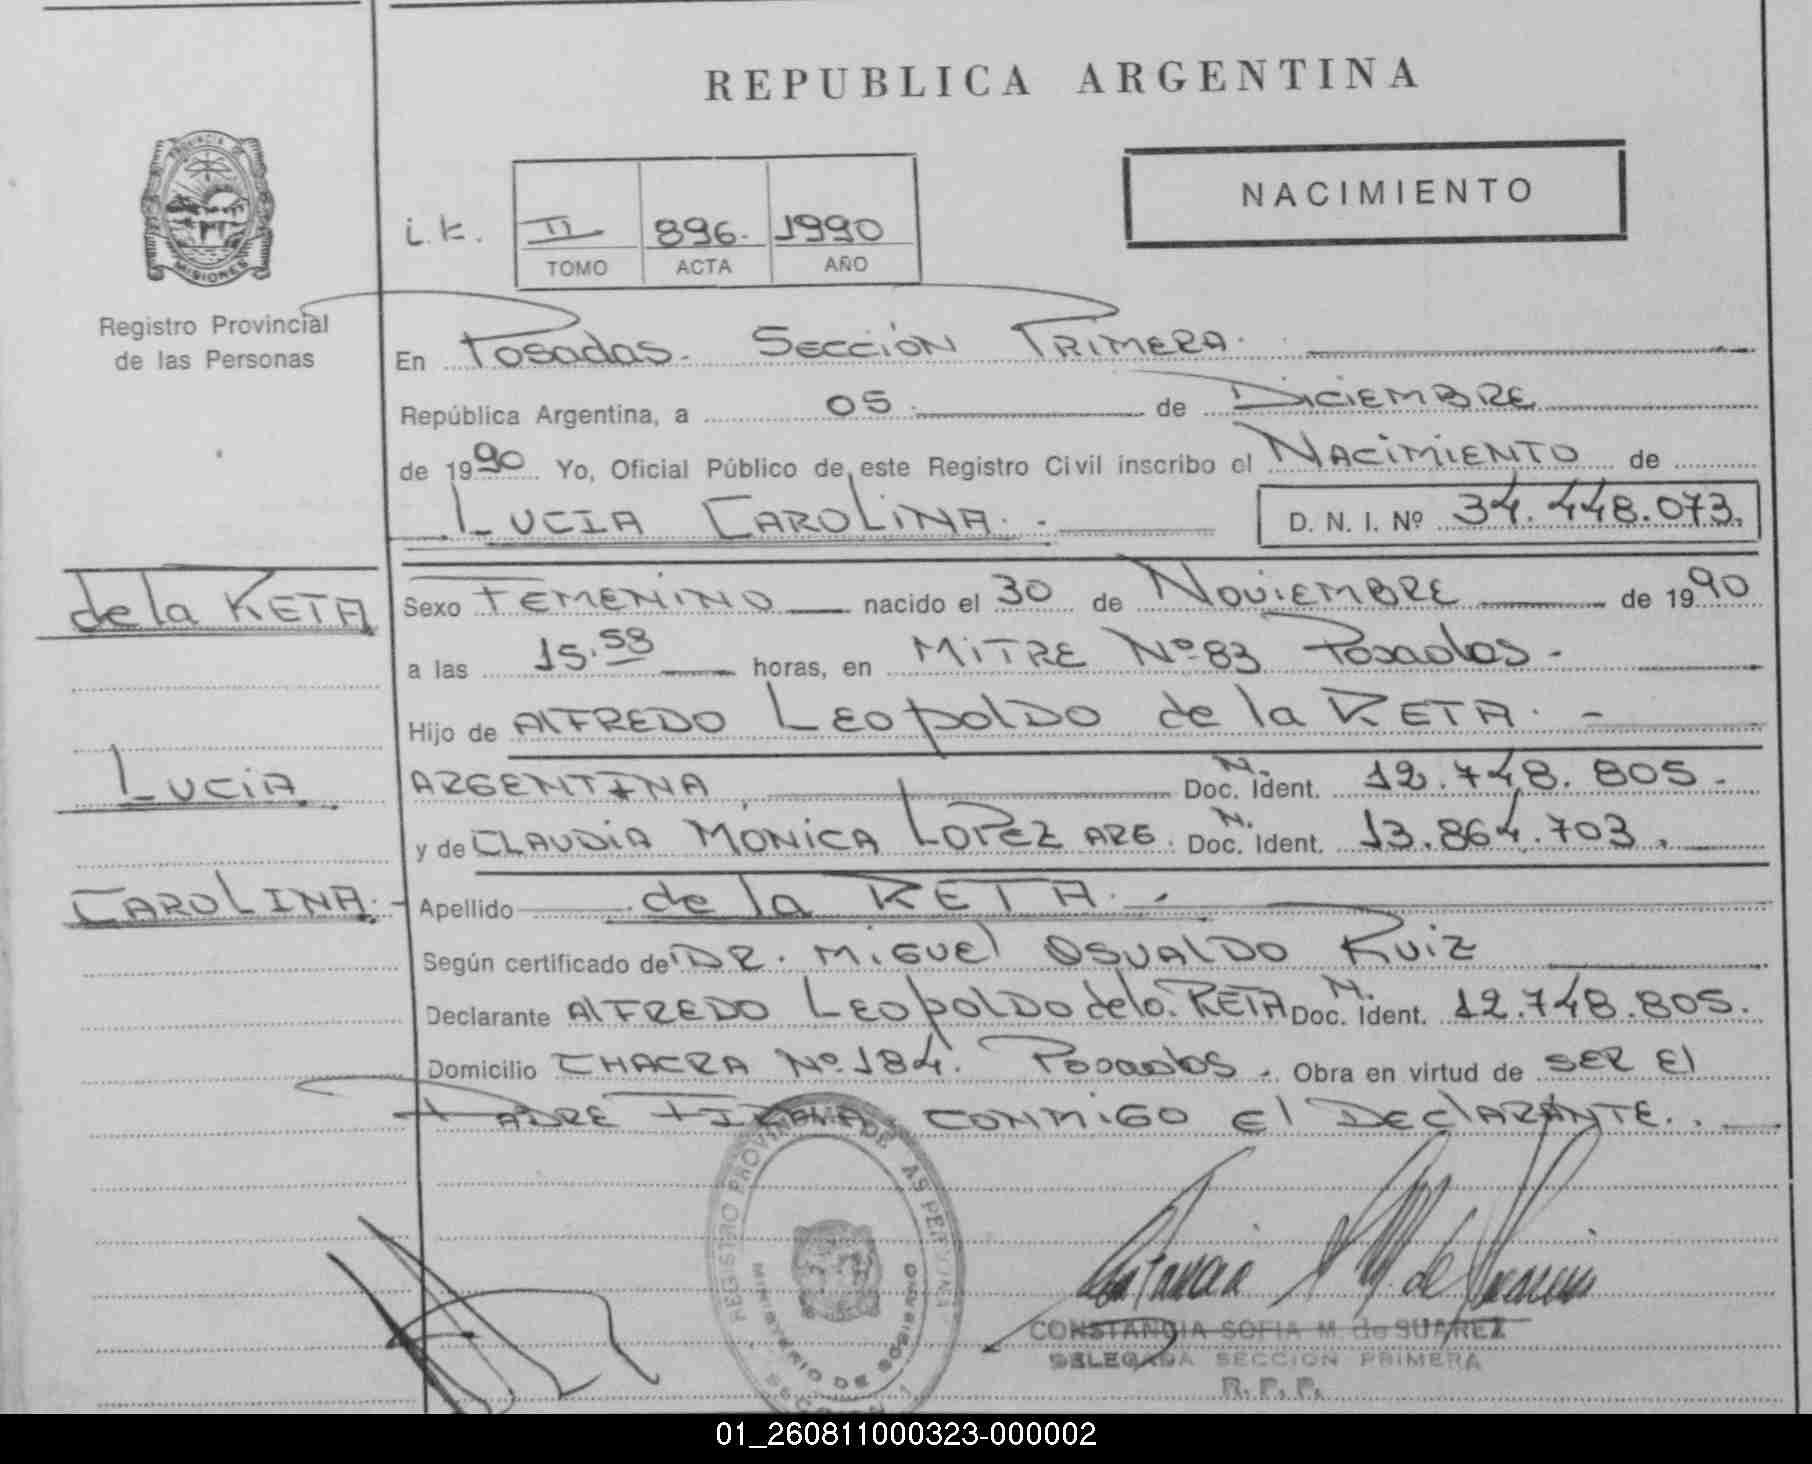 REPUBLICA ARGENTINA
PROVINCIA DE
MISIONES
Registro Provincial
de las Personas
NACIMIENTO
i.k.
II 896. 1990
TOMO ACTA AÑO
En Posadas. Sección Primera.
República Argentina, a 05 de Diciembre
de 1990 Yo, Oficial Público de este Registro Civil inscribo el Nacimiento de
Lucia Carolina.
D. N. I. Nº 34.448.073.
de la Reta
Sexo Femenino nacido el 30 de Noviembre de 1990
a las 15.58 horas, en Mitre Nº 83 Posadas.
Hijo de Alfredo Leopoldo de la Reta.
Lucia
Argentina, Doc. N. Ident. 12.748.805.
y de Claudia Mónica Lopez Arg. Doc. N. Ident. 13.864.703.
Carolina.
Apellido de la Reta.
Según certificado de Dr. Miguel Osvaldo Ruiz
Declarante Alfredo Leopoldo de la Reta Doc. N. Ident. 12.748.805.
Domicilio Chacra Nº 184. Posadas. Obra en virtud de ser el
Padre Firma conmigo el Declarante.
REGISTRO PROVINCIAL DE LAS PERSONAS
MINISTERIO DE GOBIERNO
CONSTANCIA SOFIA M. de SUAREZ
DELEGADA SECCION PRIMERA
R. P. P.
01_260811000323-000002